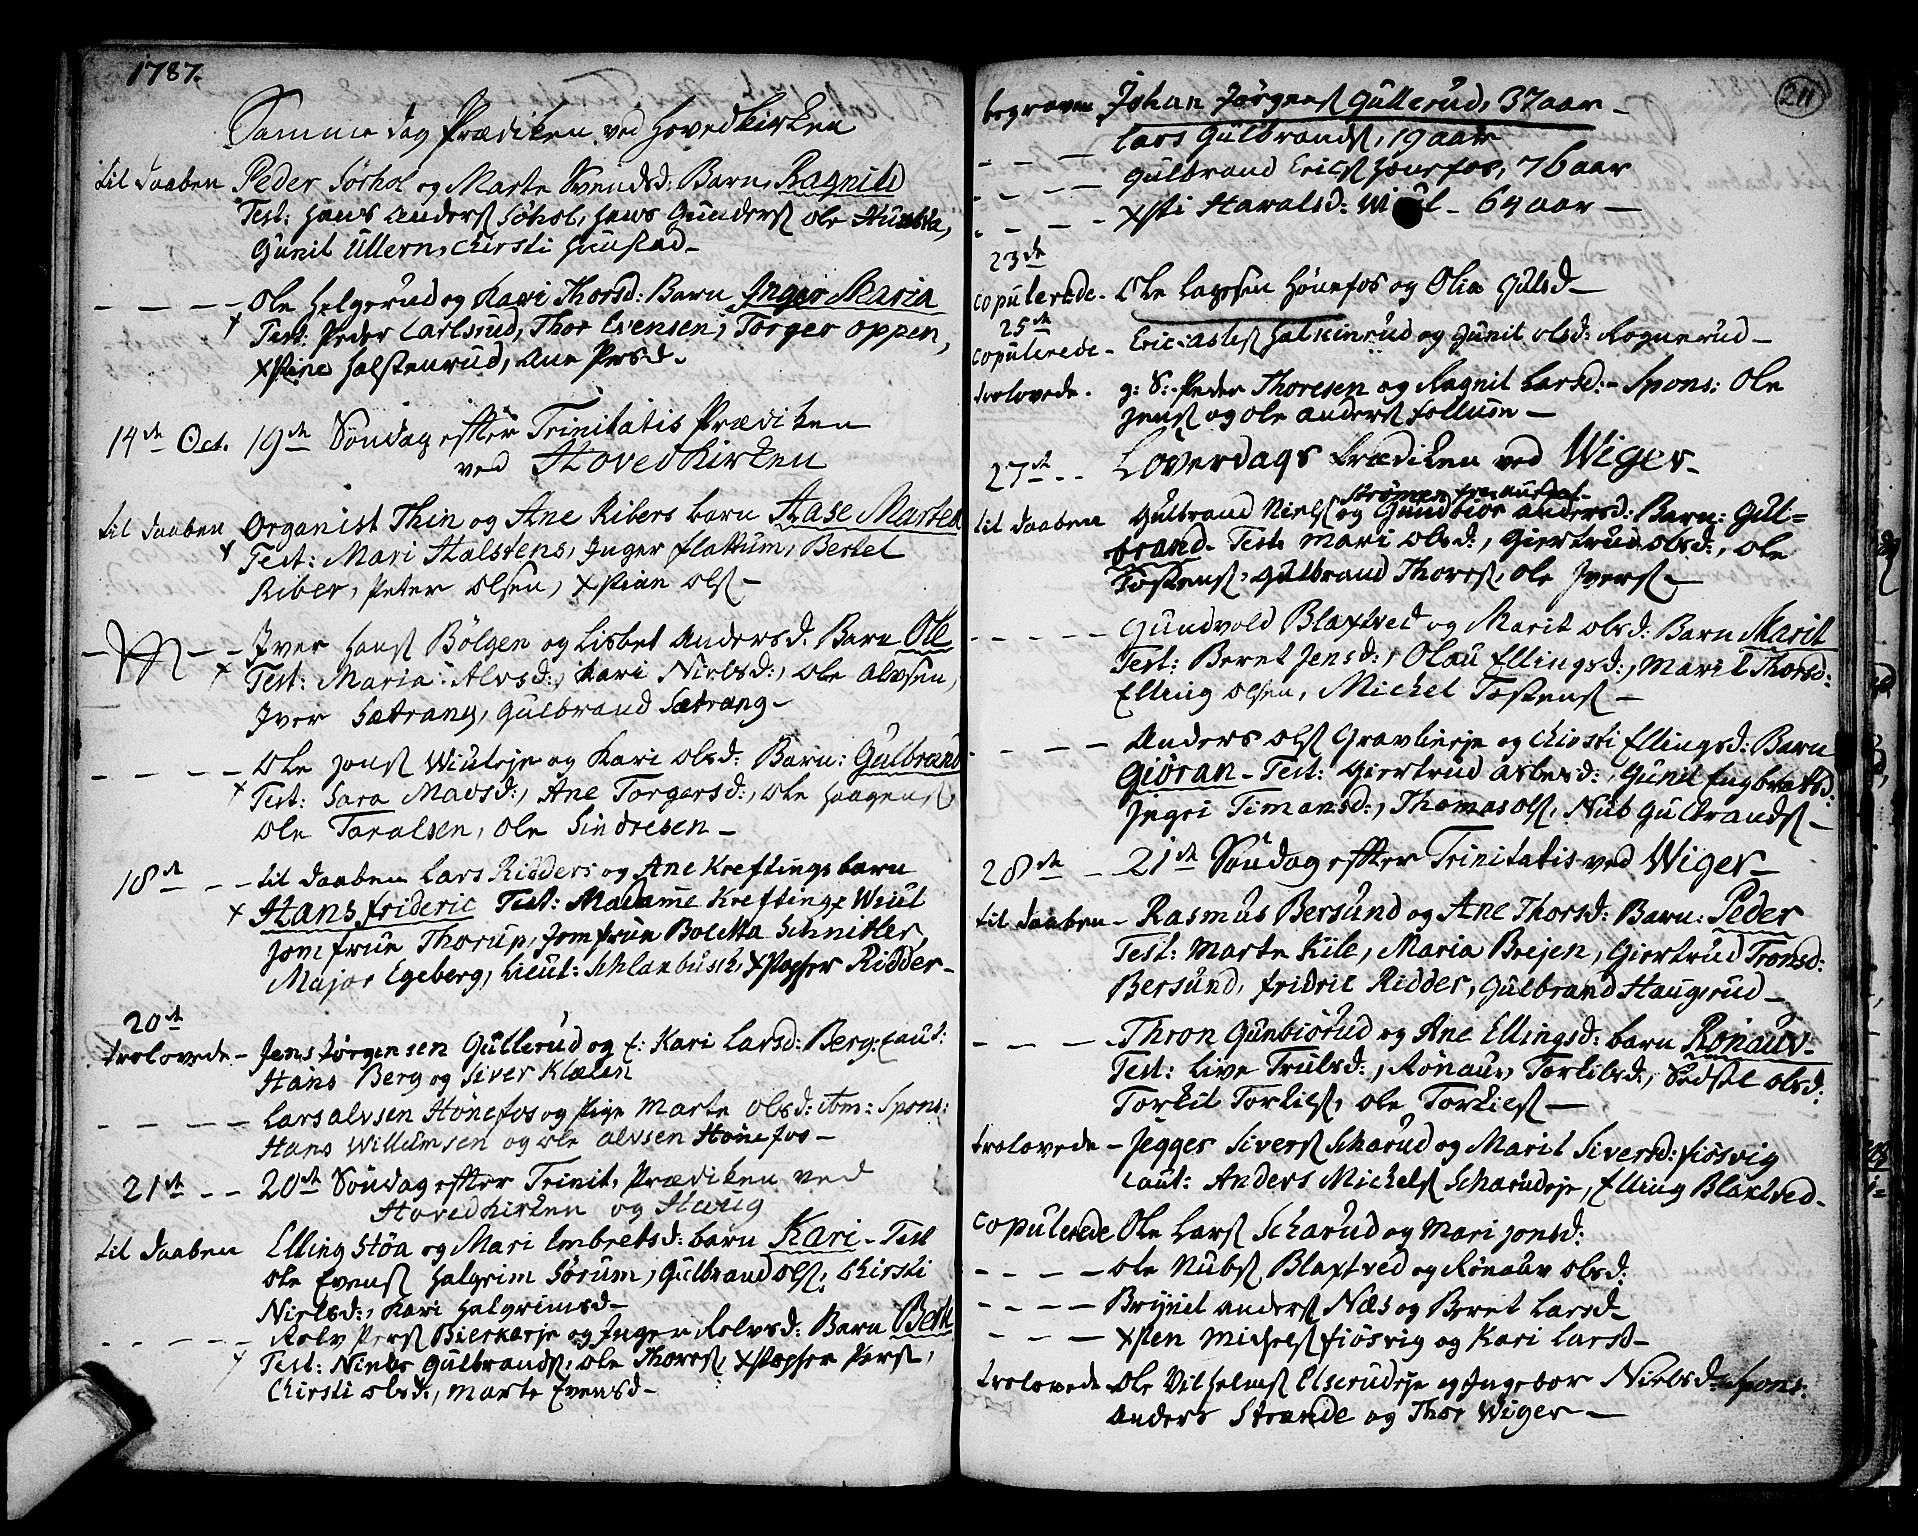 1787.
Samme dag Prædiken ved Hovedkirken
til daaben Peder Sörhol og Marte Svendsd: Barn, Ragnild
Test: Hans Anders Söhol, Hans Gunders Ole
Gunil Ullern, Chirsti
- - - - Ole Helgerud og Kari Thorsd: Barn Inger Maria
Test: Peder Carlsrud, Thor Evensen, Torger Oppen,
Xstine Halstenrud, Ane Persd.
14de Oct. 19de Söndag effter Trinitatis Prædiken
ved Hovedkirken
til daaben Organist Thin og Ane Ribers barn Aase Marten
Test: Mari Halstens, Inger flattum, Bertel
Riber, Peter Olsen, Xstian Ols
- - - Iver Hans Bölgen og Lisbet Andersd. Barn Ole
Test: Maria Alvsd:, Kari Nielsd:, Ole Alvsen,
Iver Sætrang, Gulbrand Sætrang
- - - - Ole Jons Wiuleje og Kari Olsd: Barn: Gulbrand
Test: Sara Mavsd:, Ane Torgersd:, Ole Haagens,
Ole Taralsen, Ole Sindresen
18de - - til daaben Lars Ridders og Ane Kreftings barn
Hans frideric Test: Madame Krefting, Wiul
Jomfrue Thorup, Jomfrue Boletta Schnitler,
Major Egeberg, Lieut: Schlanbusch, Xstopher Ridder
20de
trolovede - Jens Jörgensen Gullerud og f: Kari Larsd: Berg: Caut:
Hans Berg og Siver Klælen
- - - - Lars Alvsen Hönefos og Pige Marte Olsd: ibm: Spons:
Hans Willumsen og Ole Alvsen Hönefos
21de - - 20de Söndag effter Trinit. Prædiken ved
Hovedkirken og
til daaben Elling Stöa og Mari Embretsd: barn Kari - Test
Ole Evens Halgrim Sörum, Gulbrand Ols, Chirsti
Nielsd:, Kari Halgrimsd
- - - - Rolv Pers Bierkerje og Inger Rolvsd: Barn
Test: Niels Gulbrands, Ole Thores, Xstopher Pers,
Chirsti Olsd:, Marte Evensd
211
begraven Johan Jörgens Gullerud, 37 aar
- - - Lars Gulbrands, 19 aar
- - - Gulbrand Erics Hönefos, 76 aar
- - - Xsti Haralsd: 64 aar
23de
copulerede. Ole Larssen Hönefos og Olia Gulsd
25de
copulerede - Eric Asles Halkinrud og Gunil Olsd: Rognerud
trolovede. g: S: Peder Thoresen og Ragnil Larsd: - Spons: Ole
Jens og Ole Anders follum
27de - - Löverdags Prædiken ved Wiger
Strömen
til daaben Gulbrand Niels og Gundbior Andersd: Barn: Gul=
brand. Test Mari Olsd:, Giertrud Olsd:, Ole
Tostens, Gulbrand Thores, Ole Ivers
- - - - Gundvold Blaxtved og Marit Olsd: Barn Marit
Test: Beret Jensd:, Olau Ellingsd:, Maril Thorsd:
Elling Olsen, Michel Tostens
- - - - Anders Ols Gravlieje og Chirsti Ellingsd: Barn
Giöran - Test: Giertrud Asbesd:, Gunil Engbretsd:
Ingri Timansd:, Thomas Ols, Nub Gulbrands
28de - 21de Söndag effter Trinitatis ved Wiger
til daaben - Rasmus Bersund og Ane Thorsd: Barn: Peder
Test: Marte Kile, Maria Brejen, Giertrud Tronsd:
Bersund, fridric Ridder, Gulbrand Haugerud
- - - - Thron Gunbiörud og Ane Ellingsd: barn Rönauv
Test: Live Trulsd:, Rönauv Torkilsd:, Sedsel Olsd:
Torkil Torkils, Ole Torkils
trolovede - Jegger Sivers Scharud og Maril Siversd: fiösvig
Caut: Anders Mickels Scharudeje, Elling Blaxtved
copulerede Ole Lars Scharud og Mari Jonsd:
- - - - Ole Nubs Blaxtved og Rönauv Olsd:
- - - - Brynil Anders Næs og Beret Larsd
- - - Xsten Michels fiösvig og Kari Larsd
trolovede Ole Vilhelms Elserudeje og Ingebor Nielsd: Spons:
Anders Strande og Thor Wiger